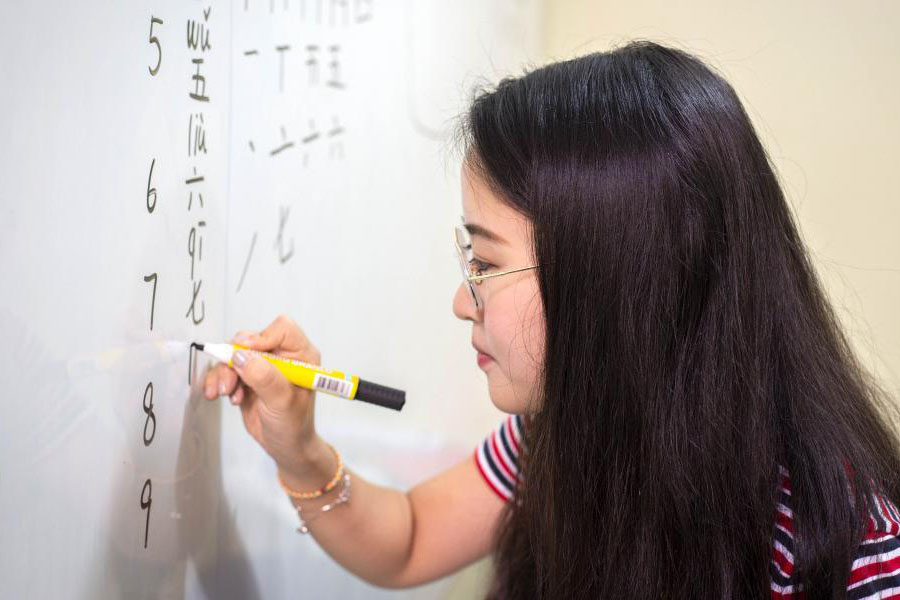 5 wǔ
五 一 丅 五
liù 丶 亠 六
6 六
qī 七
7 七
8
9